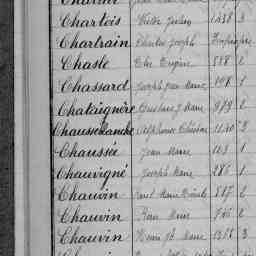 Chartois Victor Julien 1438 3
Chartrain Charles Joseph
Chasle Elie Eugène 888 2
Chassard Joseph Jean Marie 108 1
Chataignère Gustave J. Marie 979 2
Chausseblanche Alphonse 1140 3
Chaussée Jean Marie 103 1
Chauvigné Joseph Marie 286 1
Chauvin Paul Marie 587 2
Chauvin Jean Marie 766 2
Chauvin Henri Jh Marie 1358 3